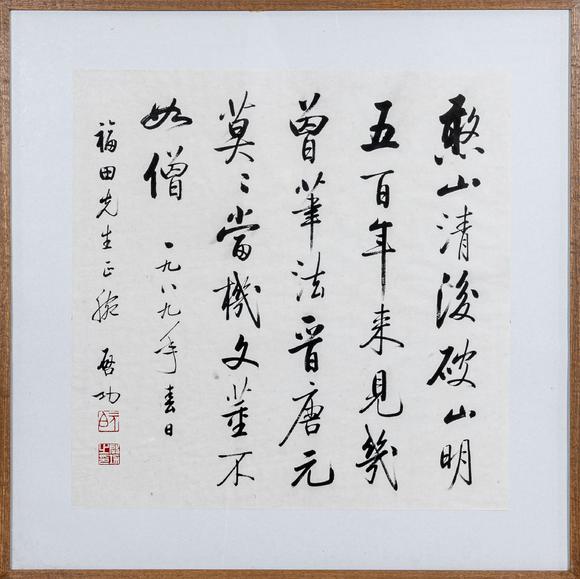 憨山清後破山明
五百年来見幾
曾筆法晋唐元
莫二當機文董不
如僧 一九八九年春日
福田先生正腕 啓功